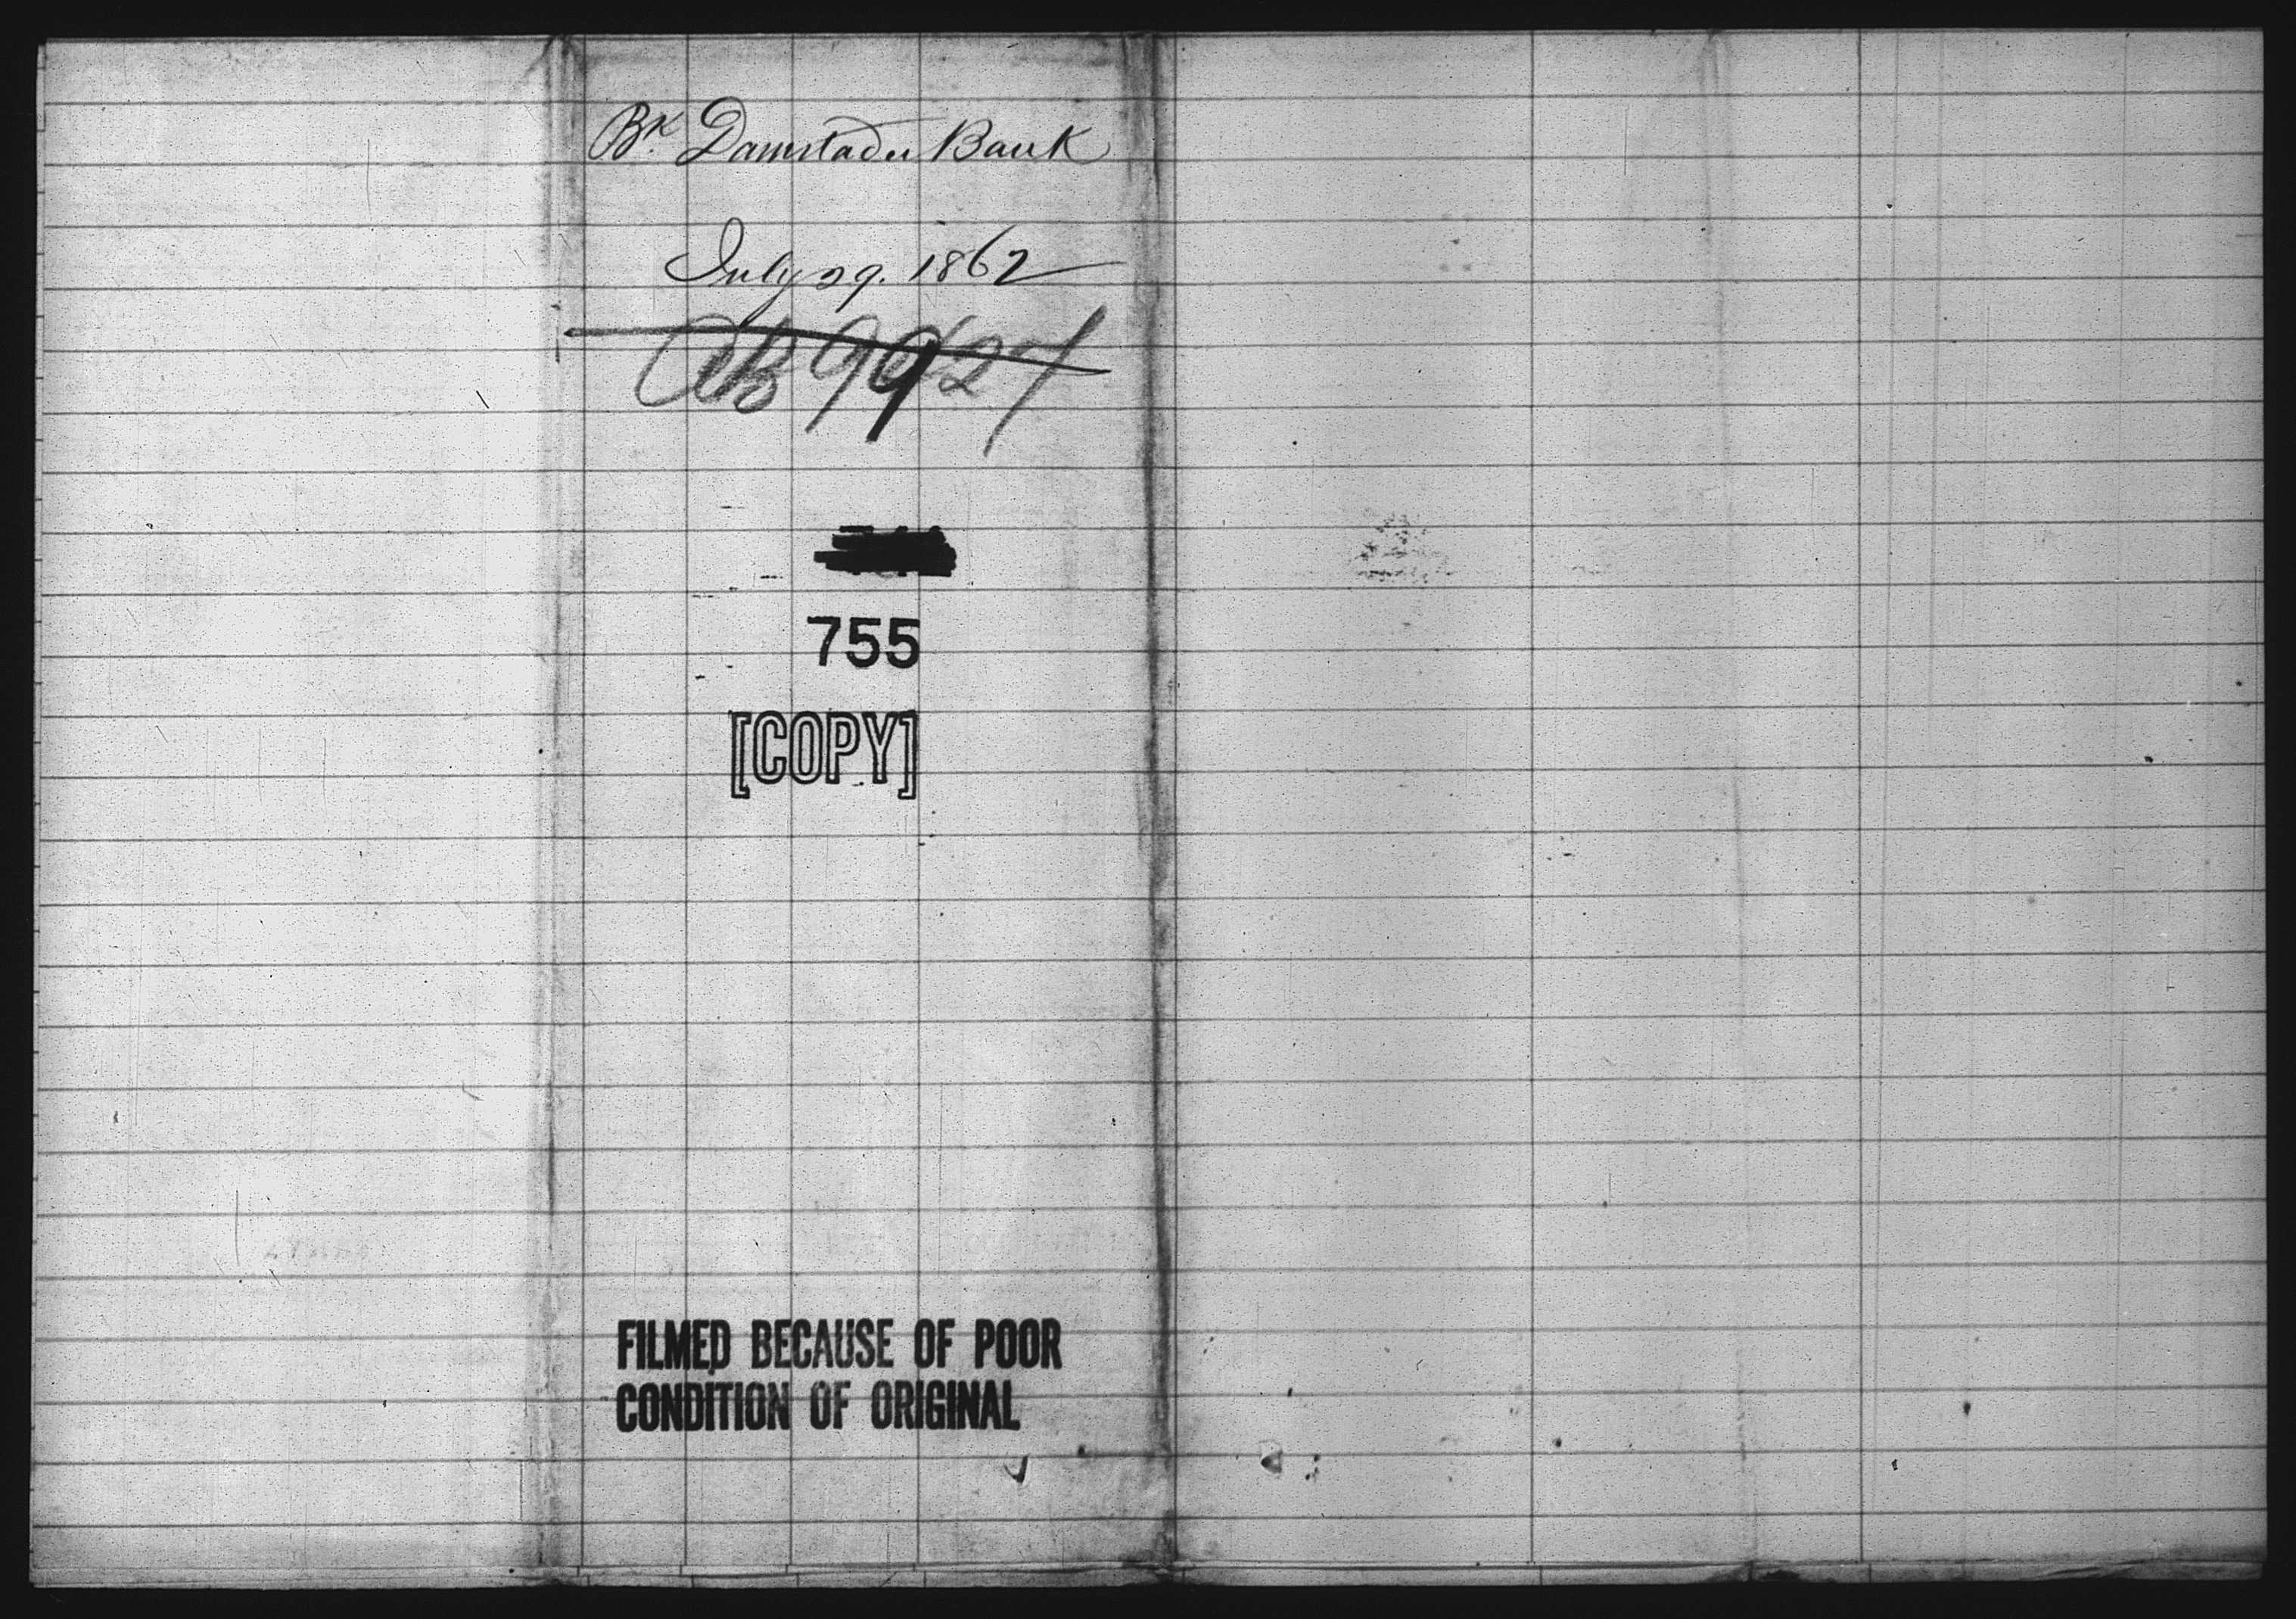 Bk. Damstader Bank
July 29. 1862
9927
755
[COPY]
FILMED BECAUSE OF POOR
CONDITION OF ORIGINAL